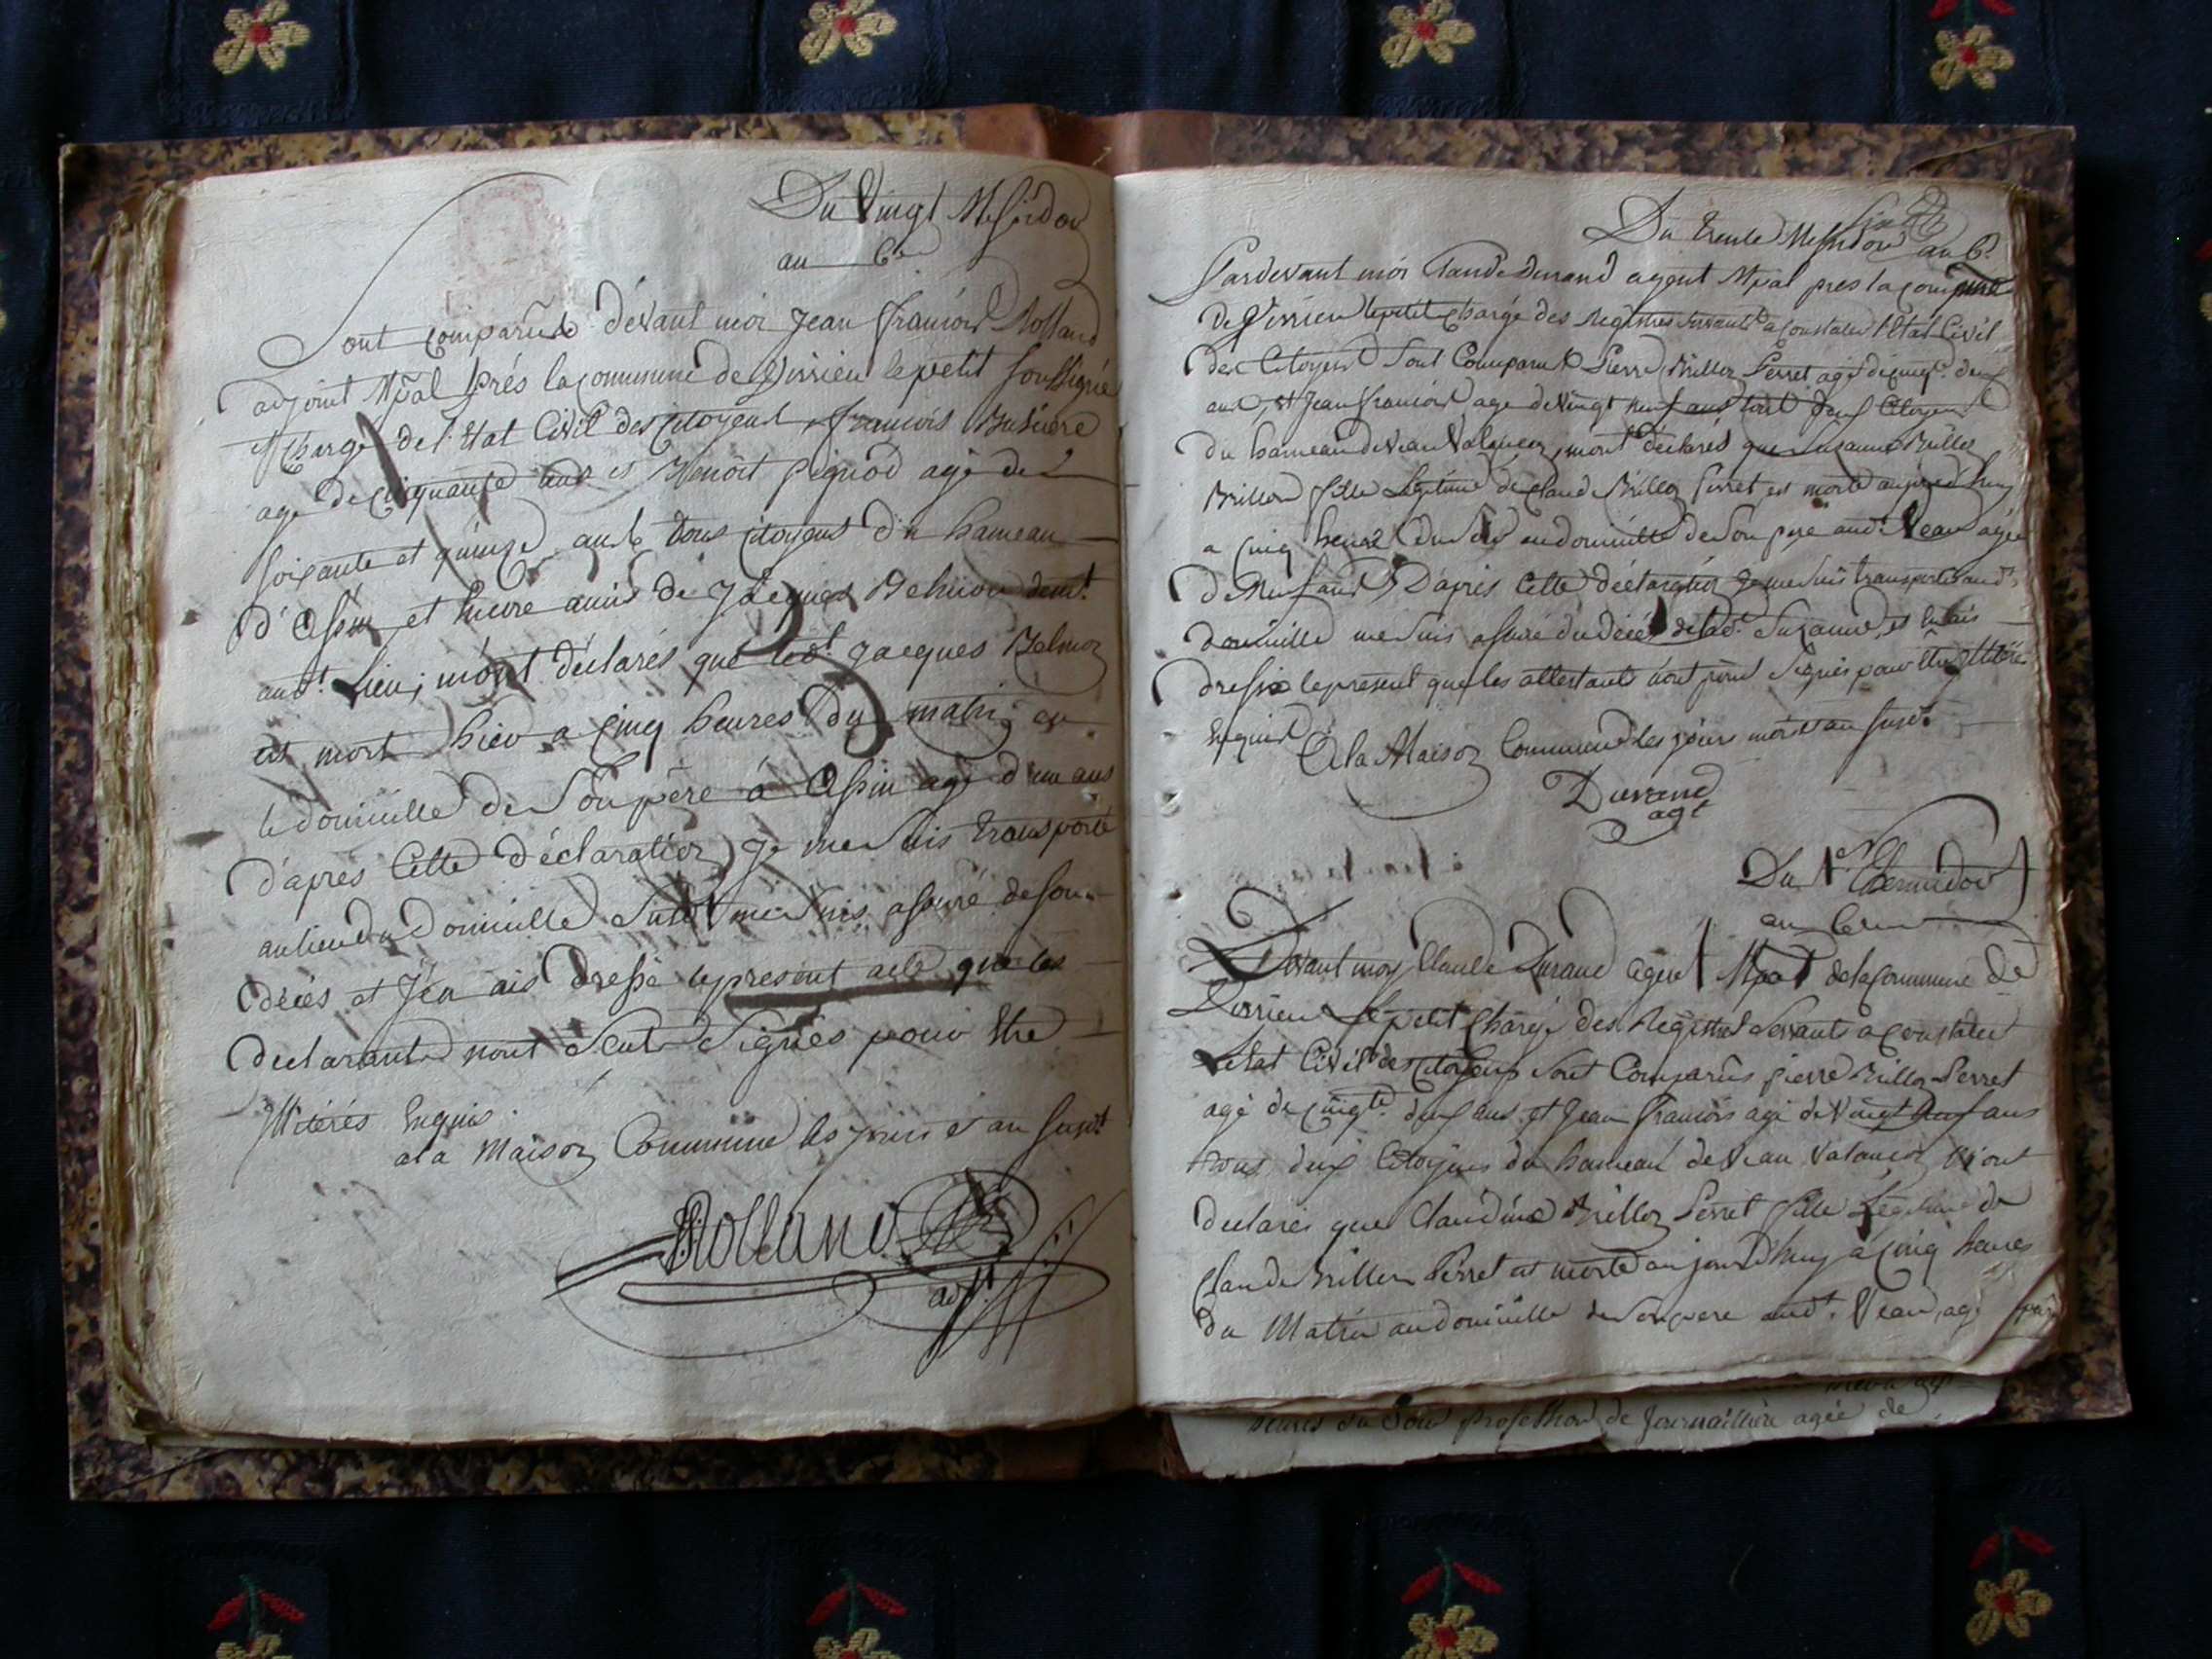 Du Vingt Messidor
an 6e
Sont comparûs devant moi Jean François Rolland
adjoint Mpal près la commune de Virrieu le petit soussigné
Chargé de l'Etat Civil des Citoyens francois
agé de Cinquante ans et Benoît Pignod agé de
soixante et quinze ans tous citoyens du hameau
d'Assin et Encore amis de Jacques demt.
audt. Lieu; m'ont déclarés que led. Jacques
est mort hier a cinq heures du matin en
le domicille de Son père á Assin agé d'un ans
d'aprés Cette déclaration Je me suis transporté
au lieu du Domicille Susdt me suis assuré de son
décés et j'en ais dressé le present acte que les
declarants nont Seut Signés pour Etre
Illitérés Enquis.
a la Maison Commune les jours et an susdt
Rolland
adjt.
Du trente Messidor an 6e
Pardevant moi Claude Durand agent Mpal pres la commune
de Virrieu le petit chargé des Registres servants a constater l'Etat Civil
des Citoyens Sont Comparus Pierre Brillon Perret agé de cinqte. deux
ans, et Jean francois agé de Vingt neuf ans tout deux Citoyens
du hameau de Veau m'ont déclarés que Suzanne Brillon
fille Legitime de Claude Brillon Perret est morte aujourd'huy
a cinq heures du Soir au domicille de Son pere audt. Veau agée
de Neuf ans D'aprés Cette déclaration Je me suis transporté aud.
domicille me suis assuré du décés de lad. Suzanne, et En ais
dressé le present que les attestants n'ont point Signés pour Etre Illitérés
Enquis
A la Maison Commune les jours mois et an susdt.
Durand
agt
Du 1er Thermidor
an 6e
Devant moy Claude Durand Agent Mpal de la Commune De
Virrieu le petit Chargé des Registres Servants a constater
l'Etat Civil des Citoyens Sont Comparûs pierre Brillon Perret
agé de cinqte. deux ans et Jean francois agé de Vingt Neuf ans
tous deux Citoyens du hameau de Veau M'ont
declarés que Claudine Brillon Perret fille Légitime de
Claude Brillon Perret est morte aujourd'huy à cinq heures
du Matin au domicille de Son pere audt. Veau, agé
heures du Soir profession de Journaillière agée de